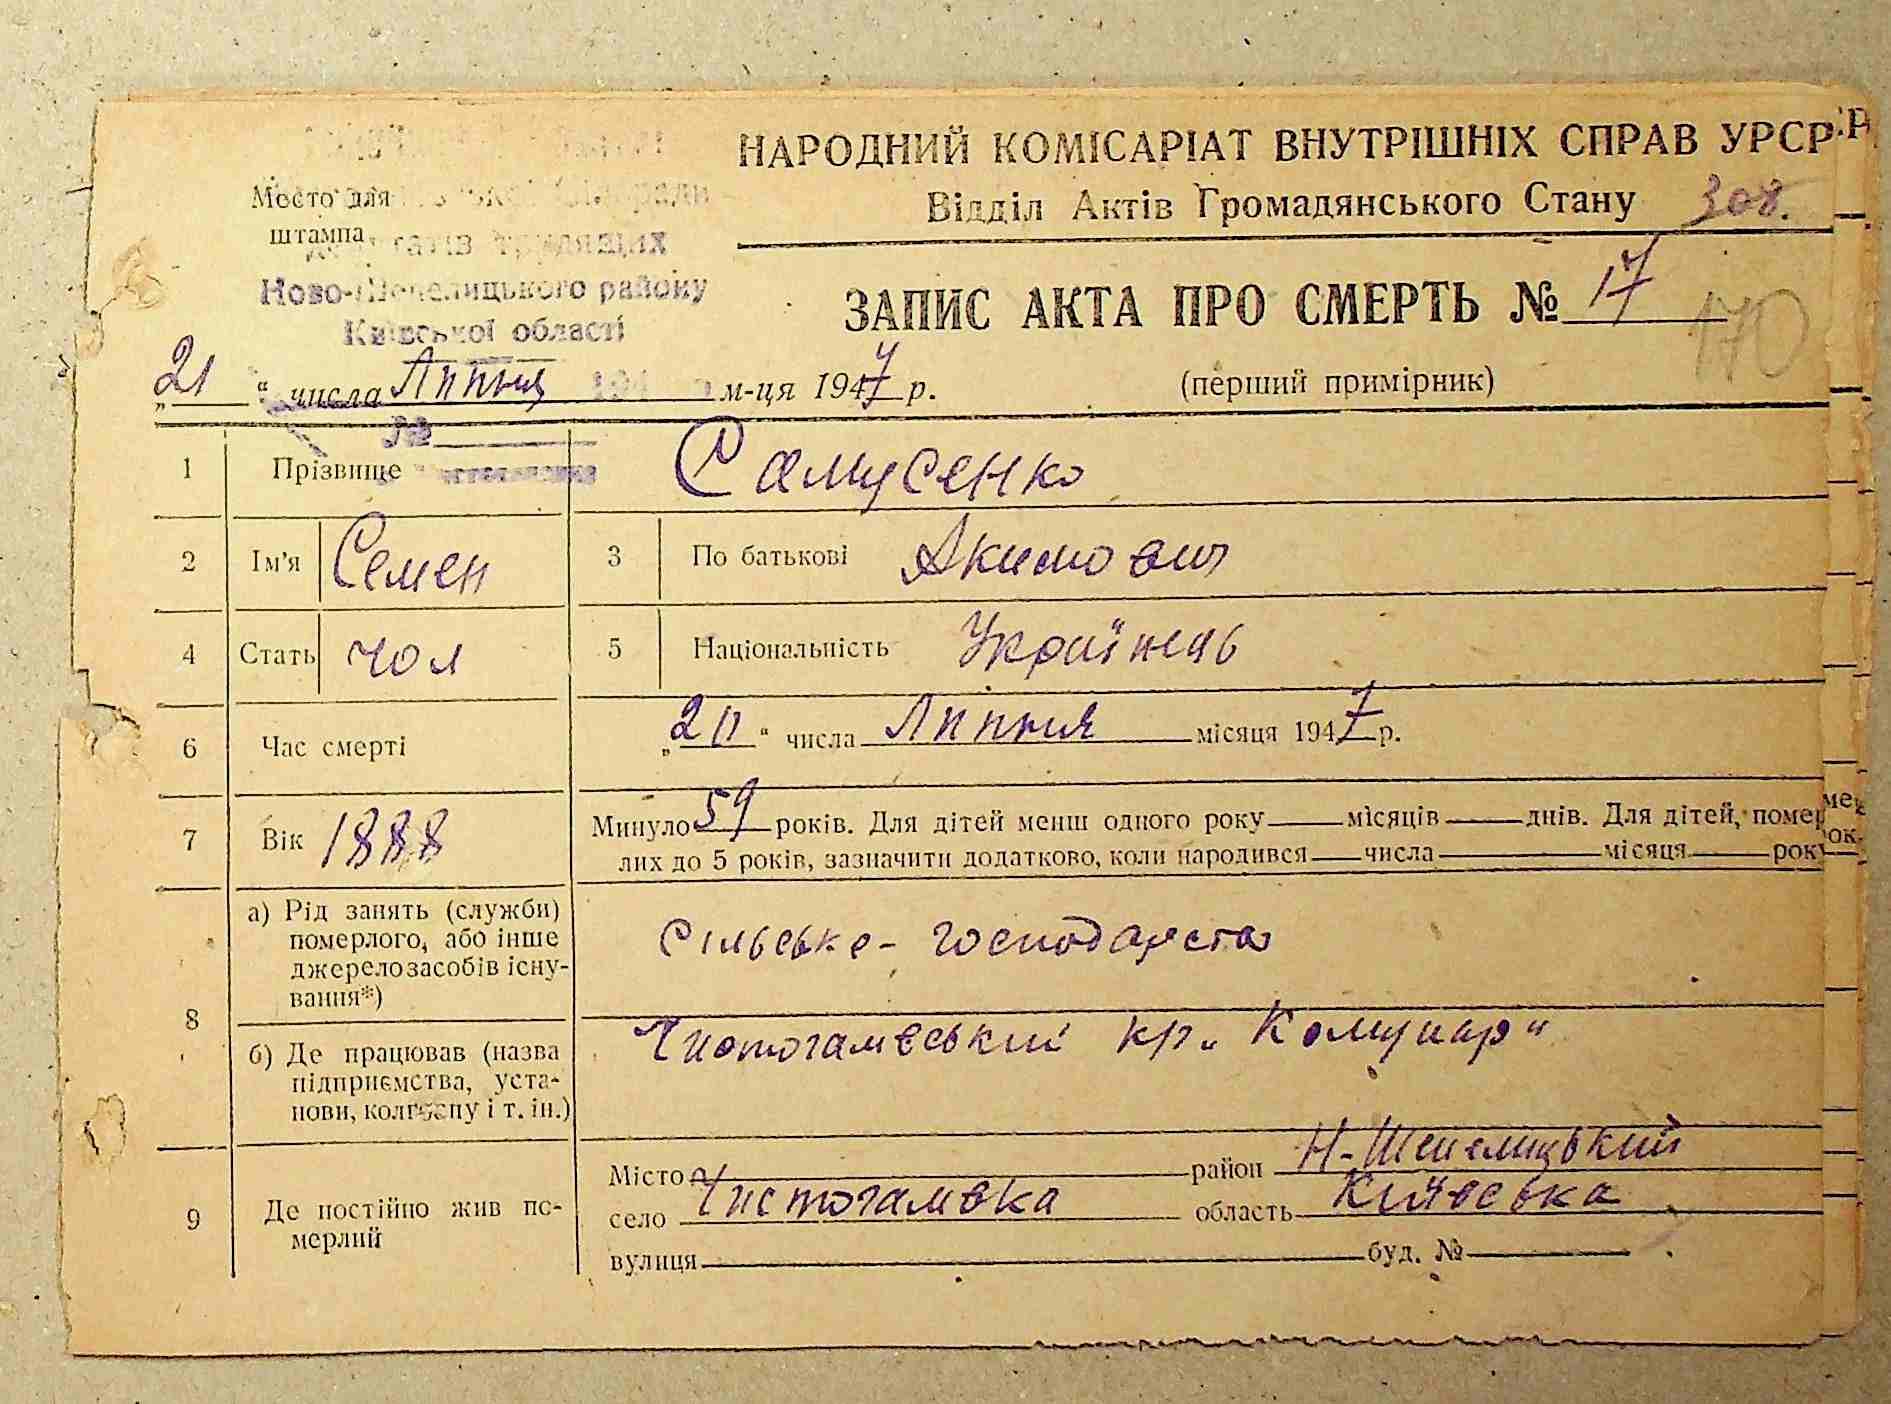 НАРОДНИЙ КОМІСАРІАТ ВНУТРІШНІХ СПРАВ УРСР
Відділ Актів Громадянського Стану 308.
Место для
штампа
трудящих
Ново-Шепелицького району
Київської області
ЗАПИС АКТА ПРО СМЕРТЬ № 17
170
„21“ числа Липня м-ця 1947 р.
(перший примірник)
№
1 Прізвище Самусенко
2 Ім'я Семен 3 По батькові Акимович
4 Стать чол 5 Національність Українець
6 Час смерті „20“ числа Липня місяця 1947 р.
7 Вік 1888 Минуло 59 років. Для дітей менш одного року місяців днів. Для дітей, помер
лих до 5 років, зазначити додатково, коли народився числа місяця рок
8 а) Рід занять (службии) померлого, або інше джерело засобів існування*) Сільське-господарство
б) Де працював (назва підприємства, установи, колгоспу і т. ін.) Чистогалівський кр. „Комунар"
9 Де постійно жив померлий
Місто район Н-Шепелицький
село Чистогалівка область Київська
вулиця буд. №